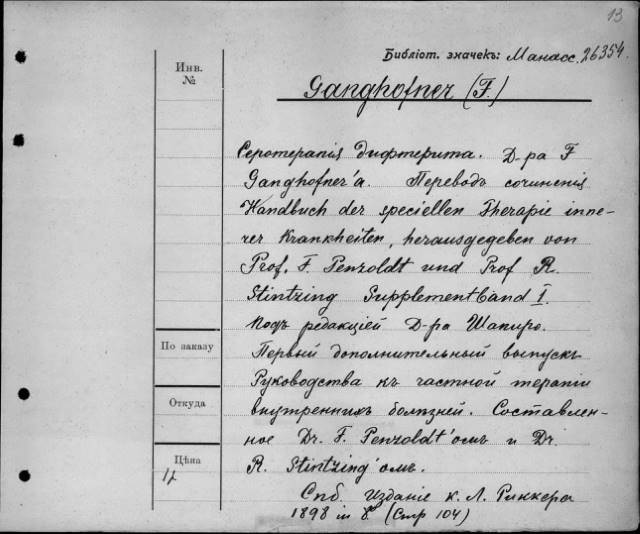 13
Библіот. значекъ: Манаос. 26354.
Инв.
№
Ganghofner (F.)
Серотерапія дифтерита. Д-ра F
Ganghofner'а. Переводъ сочиненія
Handbuch der speciellen Therapie inne-
rer Krankheiten, herausgegeben von
Prof. F. Penzoldt und Prof R.
Stintzing Supplementband I.
Подъ редакціей Д-ра Шапиро.
По заказу
Первый дополнительный выпускъ
Руководства къ частной терапіи
Откуда
внутреннихъ болѣзней. Составлен-
ное Dr. F. Penzoldt'омъ и Dr.
Цѣна
R. Stintzing'омъ.
Спб. Изданіе К. Л. Риккера
1898 in 8º (Стр 104)